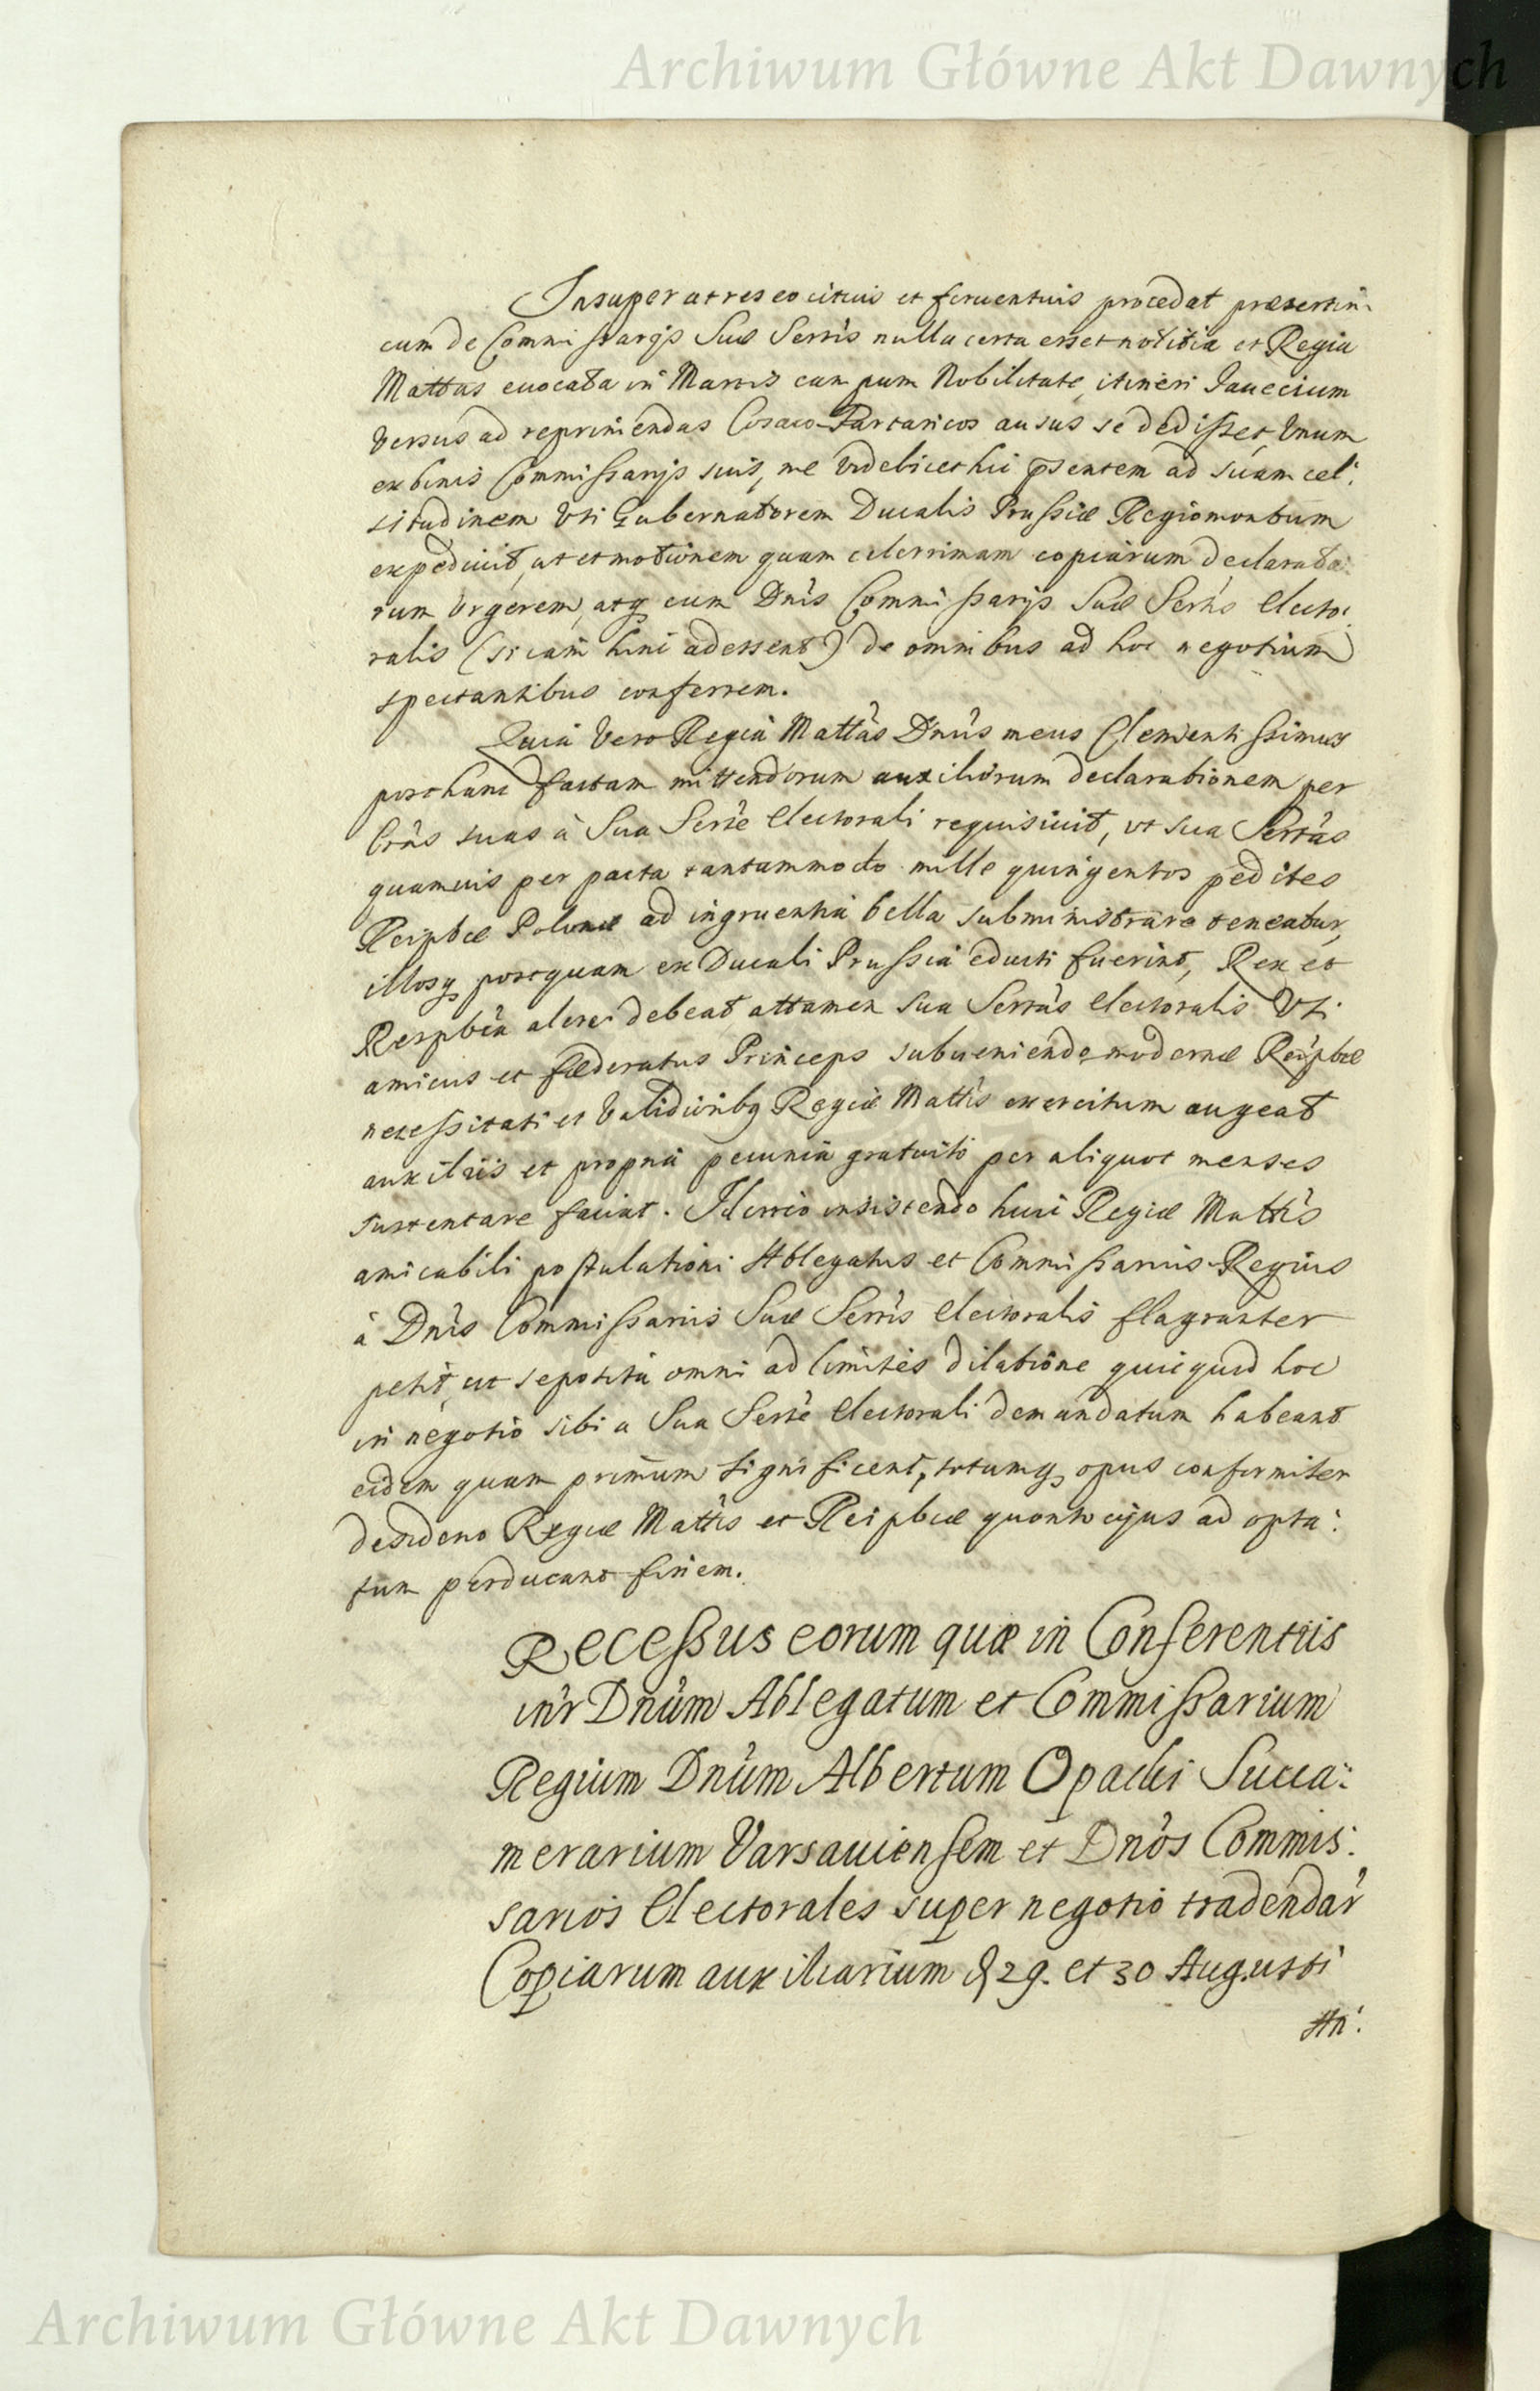 Archiwum Główne Akt Dawnych
Insuper ut res eo citius et feruentius procedat præsertim
cum de Commissarijs Suæ Serris nulla certa esset notitia et Regia
Mattas euocata in Martis campum Nobilitate, itineri Jauecium
versus ad reprimendas Cosaco-Tartaricos ausus se dedisset, Vnum
ex binis Commissarijs suis, me videlicet hic pñtem ad suam cel:
situdinem Vti Gubernatorem Ducalis Prussiæ Regiomontum
expediuit, ut et motionem quam celerrimam copiarum declarata:
rum Vrgerem, atq cum Dnis Commissarijs Suæ Serris Electo:
ralis (si iam hinc adessent) de omnibus ad hoc negotium
spectantibus conferrem.
Quia Vero Regia Mattas Dnus meus Clementissimus
post hanc factam mittendorum auxiliorum declarationem per
Lras suas à Sua Serrte Electorali requisiuit, ut sua Serrtas
quamuis per pacta tantummodo mille quingentos pedites
Reipbcæ Polonæ ad ingruentia bella subministrare teneatur,
illosq postquam ex Ducali Prussia educti fuerint, Rex et
Respbca alere debeat, attamen sua Serrtas Electoralis Vti
amicus et fæderatus Princeps subueniendo modernæ Reipbcæ
necessitati et Validioribq Regiæ Mattis exercitum augeat
auxiliis et propria pecunia gratuito per aliquot menses
sustentare faciat. Idcirco insistendo huic Regiæ Mattis
amicabili postulationi Ablegatus et Commissarius Regius
à Dnis Commissariis Suæ Serris Electoralis flagranter
petit, ut seposita omni ad limites dilatione quicquid hoc
in negotio sibi a Sua Serrte Electorali demandatum habeant
eidem quam primum significent, totumq opus conformiter
desiderio Regiæ Mattis et Reipbcæ quantocijus ad opta:
tum perducant finem.
Recessus eorum quæ in Conferentiis
intr Dnum Ablegatum et Commissarium
Regium Dnum Albertum Opacki Succa:
merarium Varsauiensem et Dnos Commis:
sarios Electorales super negotio tradendar
Copiarum auxiliarium d 29. et 30 Augusti
An:
Archiwum Główne Akt Dawnych